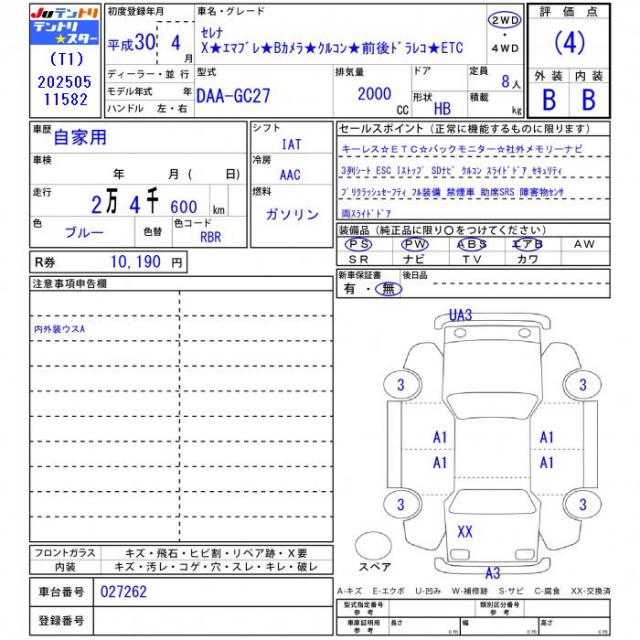 JUテントリ
テントリ
★スター
(T1)
202505
11582
初度登録年月
平成30 4
年 月
車名・グレード
セレナ
X★エマブレ★Bカメラ★クルコン★前後ドラレコ★ETC
2WD
・
4WD
評価点
(4)
外装 内装
B B
ディーラー・並行
モデル年式 年
ハンドル 左・右
型式
DAA-GC27
排気量
2000
CC
ドア
形状 HB
定員 8人
積載 kg
車歴
自家用
車検
年 月 ( 日)
走行
2万4千600 km
色
ブルー
色替
色コード
RBR
シフト
IAT
冷房
AAC
燃料
ガソリン
セールスポイント(正常に機能するものに限ります)
キーレス☆ETC☆バックモニター☆社外メモリーナビ
3列シート ESC Iストップ SDナビ クルコン スライドドア セキュリティ
プリクラッシュセーフティ フル装備 禁煙車 助席SRS 障害物センサ
両スライドドア
装備品(純正品に限り〇をつけてください)
PS PW ABS エアB AW
SR ナビ TV カワ
R券 10,190 円
新車保証書
有・無
後日品
注意事項申告欄
内外装ウスA
UA3
3 3
A1 A1
A1 A1
3 3
XX
スペア
A3
フロントガラス キズ・飛石・ヒビ割・リペア跡・X要
内装 キズ・汚レ・コゲ・穴・スレ・キレ・破レ
A-キズ E-エクボ U-凹み W-補修跡 S-サビ C-腐食 XX-交換済
車台番号 027262
登録番号
型式指定番号
参考
類別区分番号
参考
車庫証明用
参考
長さ cm 幅 cm 高さ cm